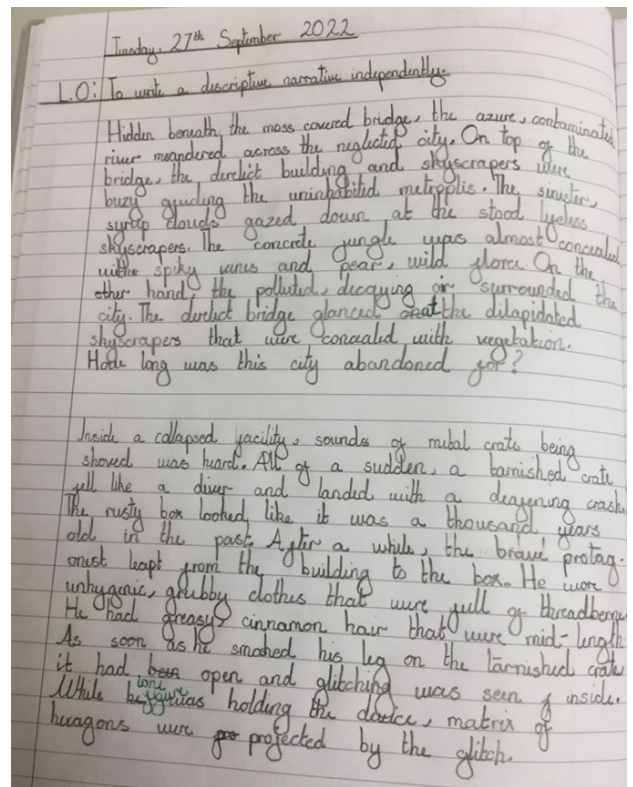 Tuesday, 27th September 2022
L.O: To write a descriptive narrative independently.
Hidden beneath the moss covered bridge, the azure, contaminated
river meandered across the neglected city. On top of the
bridge, the derelict building and skyscrapers were
buzy guiding the uninhabited metropolis. The sinister,
syrup clouds gazed down at the stood lyeless
skyscrapers. The concrete jungle was almost concealed
with spiky vines and pear, wild flora. On the
other hand, the polluted, decaying air surrounded the
city. The derelict bridge glanced at the dilapidated
skyscrapers that were concealed with vegetation.
How long was this city abandoned for?
Inside a collapsed facility, sounds of metal crate being
shoved was heard. All of a sudden, a tarnished crate
fell like a diver and landed with a deafening crash.
The rusty box looked like it was a thousand years
old in the past. After a while, the brave protag-
onist leapt from the building to the box. He wore
unhygenic, grubby clothes that were full of
He had greasy, cinnamon hair that were mid-length
As soon as he smashed his leg on the tarnished crate
it had open and glitching was seen inside.
While lone figure was holding the device, matrix of
hexagons were projected by the glitch.